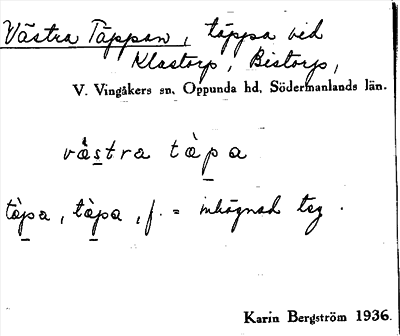 Västra Täppan, täppa vid
Klastorp, Bistorp,
V. Vingåkers sn, Oppunda hd, Södermanlands län.
västra tàpa
tàpa, tàpa, f. = inhägnad teg.
Karin Bergström 1936.